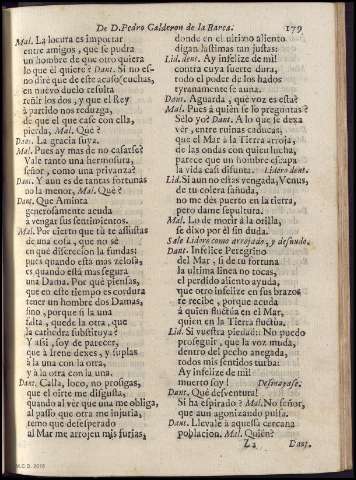 De D. Pedro Calderon de la Barca. 179
Mal. La locura es importar
entre amigos, que se pudra
un hombre de que otro quiera
lo que él quiere? Dant. Si no es-
no dirè que de estas ocho cuchas,
en nuevo duelo resulta
reñir los dos, y que el Rey
à partido nos reduzga,
de que el que case con ella,
pierda, Mal. Què?
Dant. La gracia suya.
Mal. Pues ay mas de no casarse?
Vale tanto una hermosura,
señor, como una privanza?
Dant. Y aun es de tantas fortunas
no la menor, Mal. Què?
Dant. Que Aminta
generosamente acuda
à vengar sus sentimientos.
Mal. Por cierto que tù te assustas
de una cosa, que no sè
en què discrecion la fundas:
pues quando està mas zelosa,
es quando està mas segura
una Dama. Por què piensas,
que en este tiempo es cordura
tener un hombre dos Damas,
sino, porque si la una
falta, quede la otra, que
la cathedra substituya?
Y assi, soy de parecer,
que à Irene dexes, y suplas
à la una con la otra,
y à la otra con la una.
Dant. Calla, loco, no prosigas,
que el oirte me disgusta,
quando al vèr que una me obliga,
al passo que otra me injuria,
temo que desesperado
al Mar me arrojen mis furias,
donde en el ultimo aliento
digan lastimas tan justas:
Lid. dent. Ay infelize de mi!
contra cuya suerte dura,
todo el poder de los hados
tyranamente se auna.
Dant. Aguarda, què voz es esta?
Mal. Pues à quien se lo preguntas?
Sèlo yo? Dant. A lo que se dexa
vèr, entre ruinas caducas,
que el Mar à la Tierra arroja,
de las ondas con quien lucha,
parece que un hombre escapa
la vida casi difunta. Lidoro dent.
Lid. Si aun no estàs vengada, Venus,
de tu colera sañuda,
no me dès puerto en la tierra,
pero dame sepultura.
Mal. Lo de morir à la orilla,
se dixo por èl sin duda.
Sale Lidoro como arrojado, y desnudo.
Dant. Infelice Peregrino
del Mar, si de tu fortuna
la ultima linea no tocas,
el perdido aliento ayuda,
que otro infelize en sus brazos
te recibe, porque acuda
à quien fluctùa en el Mar,
quien en la Tierra fluctùa.
Lid. Si vuestra piedad: No puedo
proseguir, que la voz muda,
dentro del pecho anegada,
todos mis sentidos turba:
Ay infelize de mi!
muerto soy! Desmayase.
Dant. Què desventura!
Si ha espirado? Mal. No señor,
que aun agonizando pulsa.
Dant. Llevale à aquella cercana
poblacion. Mal. Quièn?
Z2 Dant.